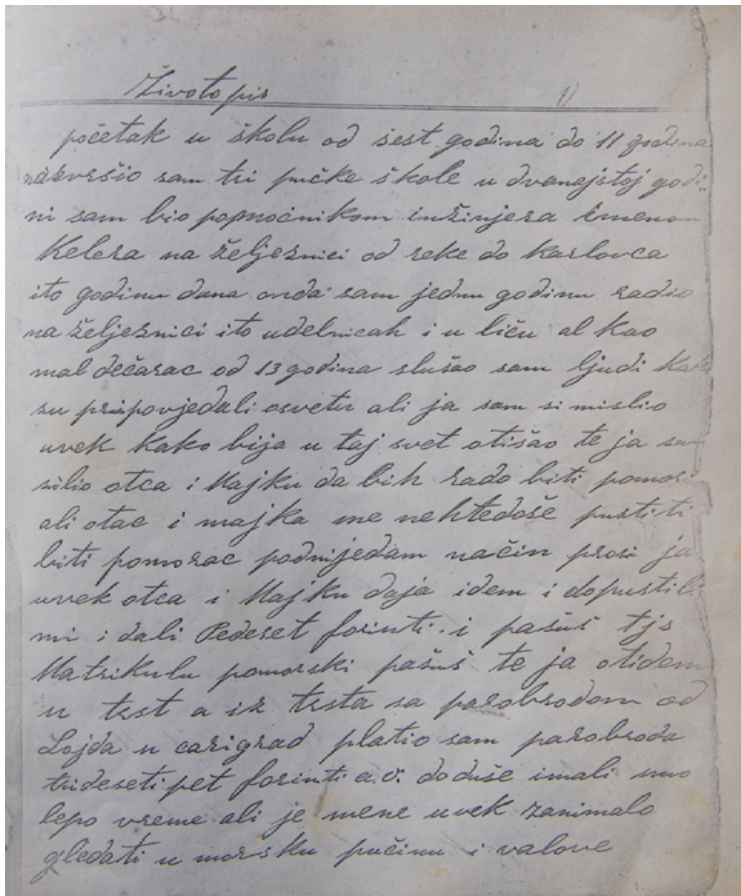 Životopis 1)
početak u školu od sest godina do 11 godina
nazvršio sam tri pučke škole u dvanajstoj godi-
ni sam bio popmoćnikom inžinjera imenom
Kelera na željeznici od reke do Karlovca
ito godinu dana onda sam jednu godinu radio
na željeznici ito udelnicah i u liču al kao
mal dečarac od 13 godina slušao sam ljudi kak
su pripovjedali osvetu ali ja sam si mislio
uvek kako bija u taj svet otišao te ja sam
silio otca i Majku da bih rado biti pomor
ali otac i majka me nehtedoše pustiti
biti pomorac podnijedam način prosi ja
uvek otca i Majku daja idem i dopustili
mi i dali Pedeset forinti i pašuš tjs
Matrikulu pomorski pašuš te ja otidem
u trst a iz trsta sa parobrodom od
Lojda u carigrad platio sam parobroda
trideseti pet forinti a.v. doduše imali smo
lepo vreme ali je mene uvek zanimalo
gledati u morsku pučinu i valove